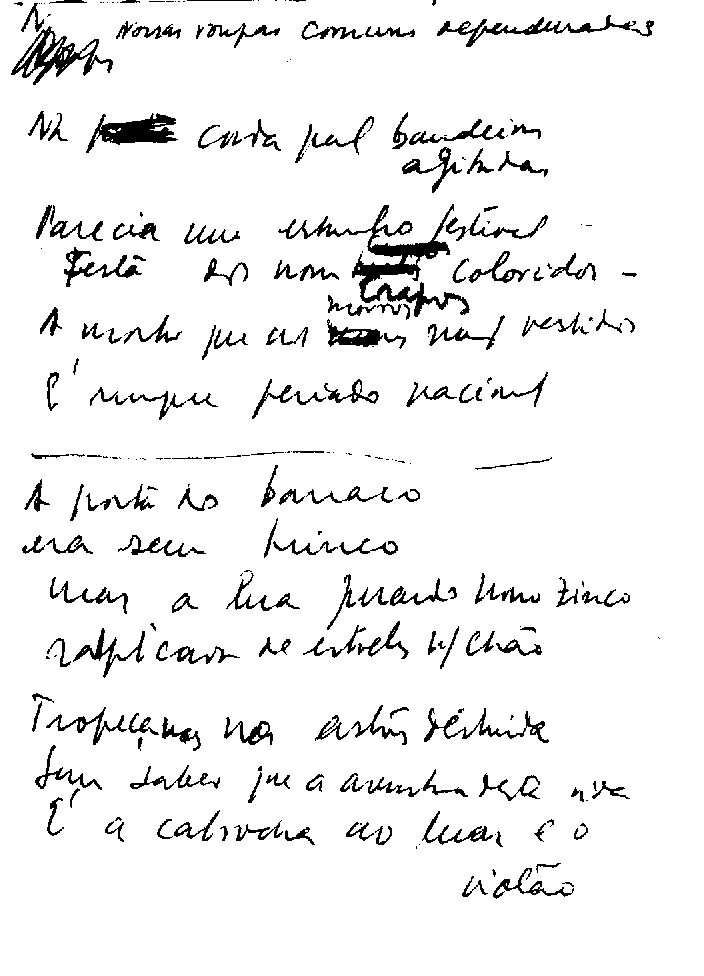 Nossas roupas comuns dependuradas
Na corda qual bandeiras
agitadas
Parecia um estranho festival
Festa dos nossos trapos coloridos -
A mostrar que nos morros mal vestidos
É sempre feriado nacional
A porta do barraco
era sem trinco
mas a lua furando nosso zinco
salpicava de estrelas n/ chão
Tropeçavas nos astros distraída
Sem saber que a ventura desta vida
É a cabrocha ao luar e o
violão